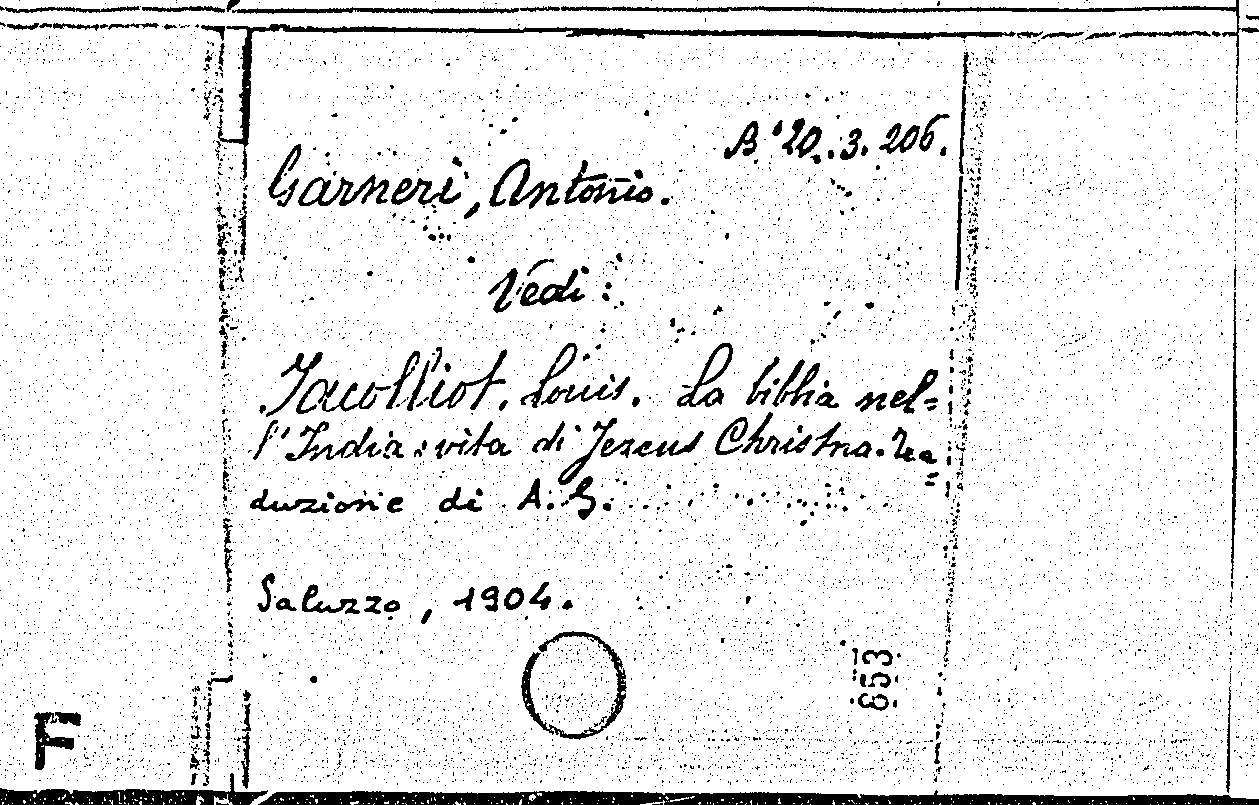 B '20..3. 206.
Garneri, Antonio.
Vedi :
Jacolliot, Louis. La bibbia nel=
l'India: vita di Jezeus Christna. Tra=
duzione di A. G.
Saluzzo, 1904.
653
F